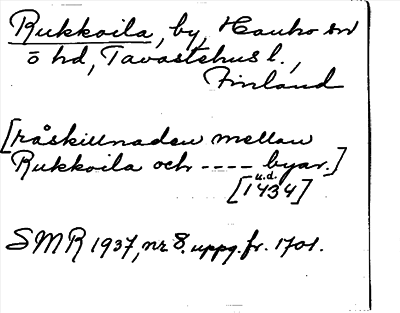 Rukkoila, by, Hauho sn
ö hd, Tavastehus l.,
Finland
[råskillnaden mellan
Rukkoila och ---- byar.]
u.d.
[1434]
SMR 1937, nr 8. uppg. fr. 1701.